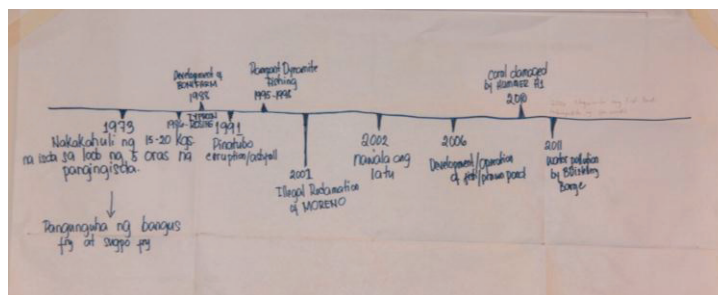 Development of
BONIFARM
1988
Rampant Dynamite
Fishing
1995-1998
Coral damaged
by HAMMER #1
2010
1973
Nakakahuli ng 15-20 kgs.
na isda sa loob ng 5 oras na
pangingisda.
Pangunguha ng bangus
fry at sugpo fry
1986
1991
Pinatubo
erruption/ashfall
2001
Illegal Reclamation
of MORENO
2002
nawala ang
latu
2006
Development/operation
of fish/prawn pond
2011
Water pollution
by
Barge